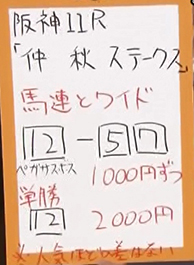 阪神11R
「仲秋ステークス」
馬連とワイド
12-57
ペガサスボス
1000円ずつ
単勝
12 2000円
※人気ほどの差はない